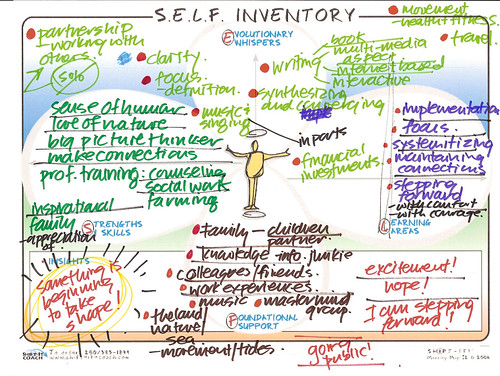 S.E.L.F. INVENTORY
EVOLUTIONARY
WHISPERS
partnership
working with
others.
50%
clarity.
focus.
definition.
writing
book
multi-media
aspect
internet based
interactive
synthesizing
and converging
movement
-health fitness.
travel.
music
singing
in parts
financial
investments.
sense of humor
love of nature
big picture thinker
make connections
prof. training: counseling
social work
farming
inspirational
family
-appreciation
of
STRENGTHS
SKILLS
implementation
focus.
systemitizing
maintaining
connections
stepping
forward
-with comfort
-with courage.
LEARNING
AREAS
INSIGHTS
something is
beginning
to take
shape!
family - children
partner.
knowledge-info. junkie
colleagues/friends.
work experiences...
music
mastermind
group.
the land
nature
sea
-movement/tides.
FOUNDATIONAL
SUPPORT
excitement!
hope!
I am stepping
forward!
going
public!
COACH